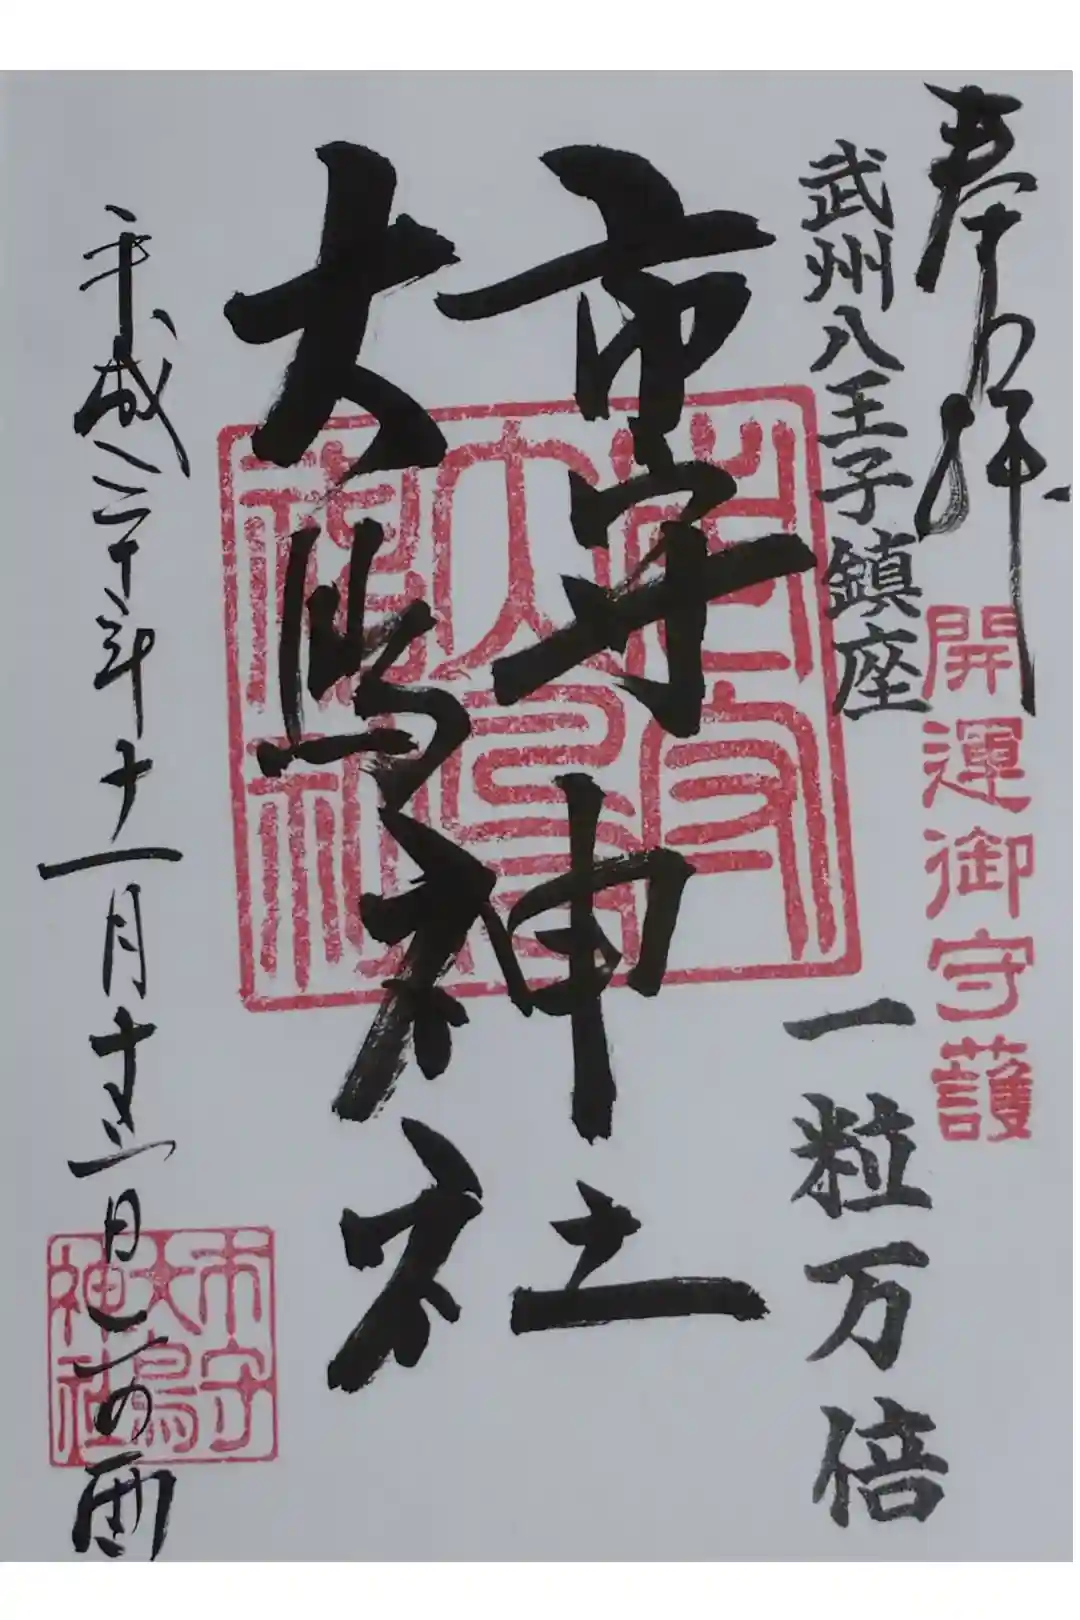 奉拝
開運御守護
武州八王子鎮座
一粒万倍
市守神社
大鳥神社
平成三十年十一月十三日二の酉
市守
大鳥
神社
市守
大鳥
神社